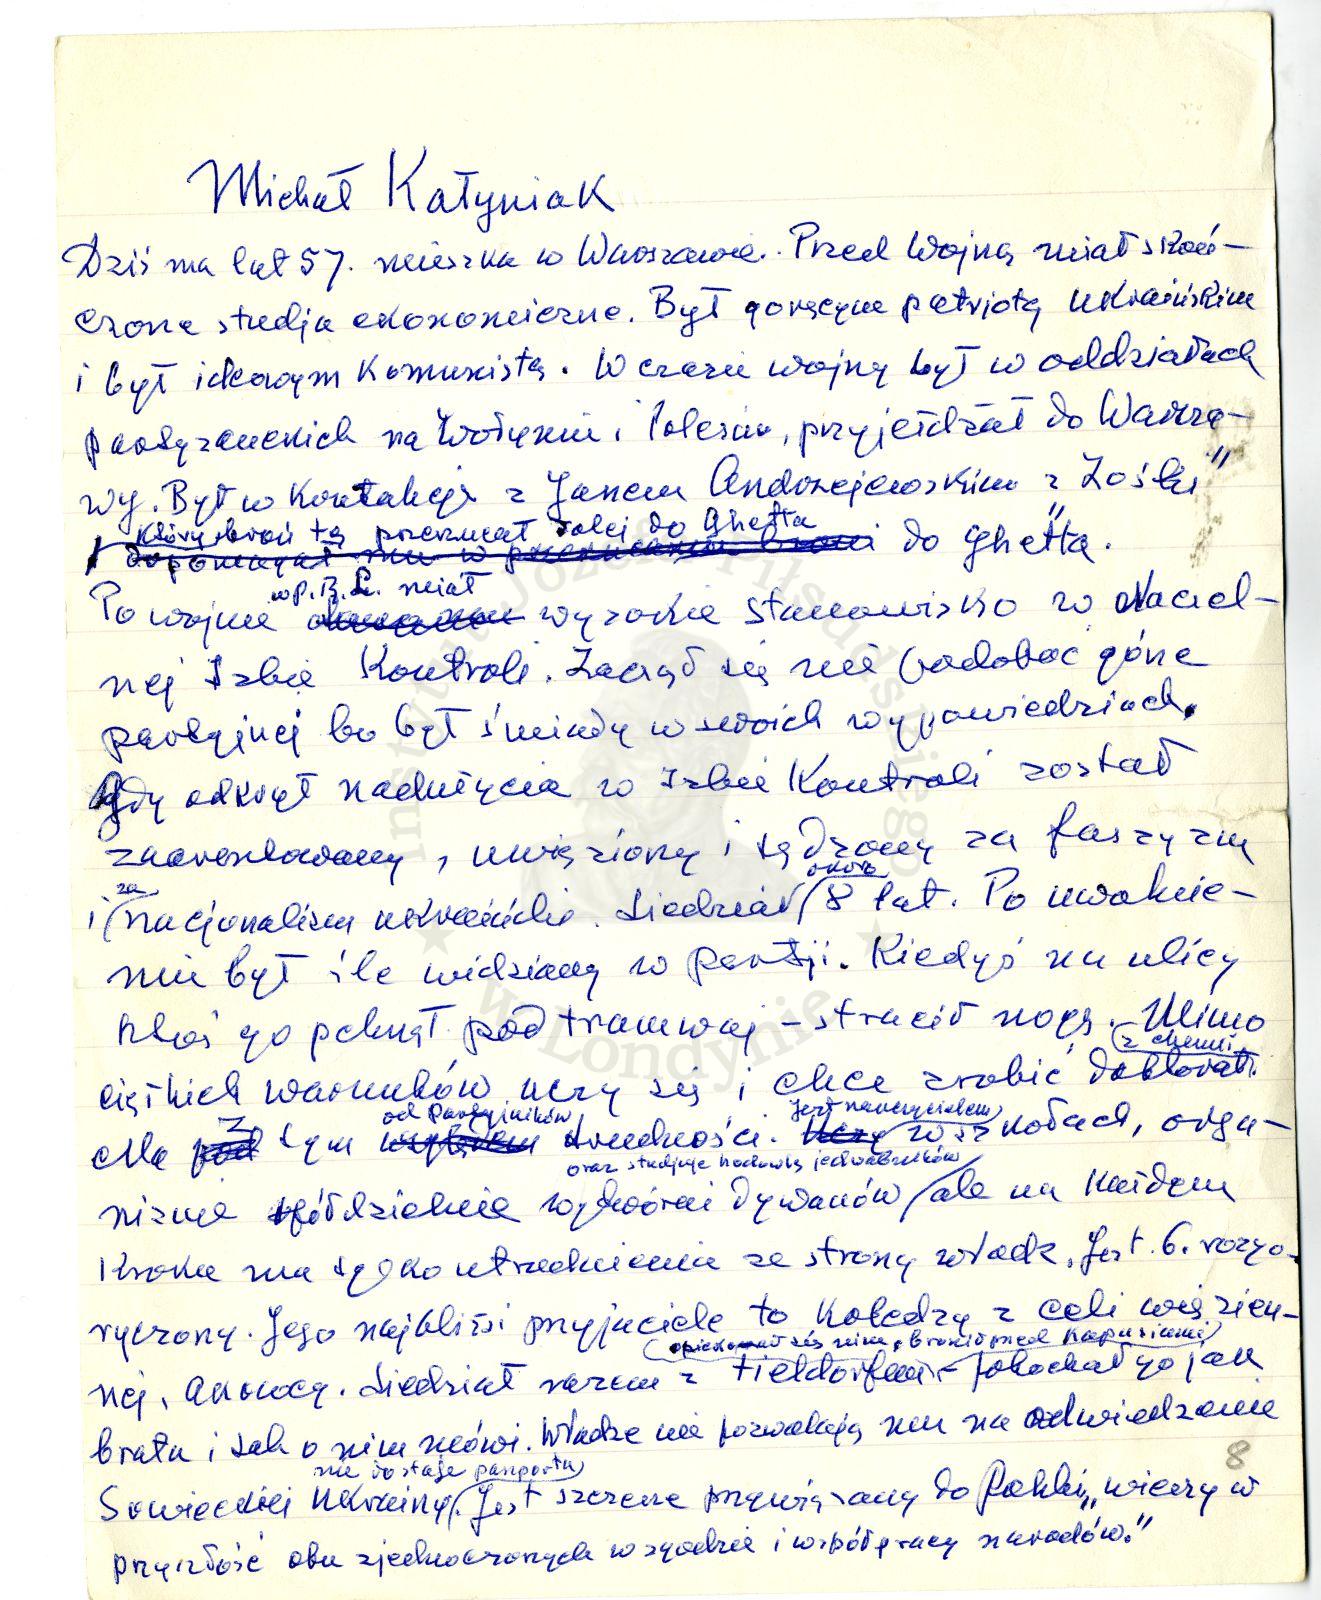 Michał Katyniak
Dziś ma lat 57. mieszka w Warszawie. Przed Wojną miał skoń-
czone studja ekonomiczne. Był gorącym patrjotą ukraińskim
i był ideowym Komunistą. W czasie wojny był w oddziałach
partyzanckich na Wołyniu i Polesiu, przyjeżdżał do Warsza-
wy. Był w Kontakcji z Janem Andrzejewskim z "Zośki"
który broń tą przerzucał dalej do Ghetta
dopomagał mu w przerzucaniu broni do Ghetta.
w P.R.L. miał
Po wojnie wysokie stanowisko w Naczel-
nej Izbie Kontroli. Zaczął się nie podobać górze
partyjnej bo był śmiały w swoich wypowiedziach.
Gdy odkrył nadużycia w Izbie Kontroli został
zaaresztowany, uwięziony i sądzony za faszyzm
za około
i nacjonalizm ukraiński. Siedział 8 lat. Po uwolnie-
niu był źle widziany w partji. Kiedyś na ulicy
ktoś go pchnął pod tramwaj - stracił nogę. Mimo
z chemii
ciężkich warunków uczy się i chce zrobić doktorat.
od Partyjników jest nauczycielem
Ma pod z tym trudności. Uczy w szkołach, orga-
oraz studjuje hodowlę jedwabników
nizuje spółdzielnie wytwórni dywanów ale na Każdem
Kroku ma tylko utrudnienia ze strony władz. Jest b. rozgo-
ryczony. Jego najbliżsi przyjaciele to Koledzy z celi więzien-
opiekował się nim, bronił przed Kapusiami
nej, Akowcy. Siedział razem z Fieldorfem - pokochał go jak
brata i tak o nim mówi. Władze nie pozwalają mu na odwiedzenie
nie dostaje paszportu
Sowieckiej Ukrainy. Jest szczerze przywiązany do Polski, "wierzy w
8
przyszłość obu zjednoczonych w zgodzie i współpracy narodów."
Instytut Józefa Piłsudskiego
w Londynie